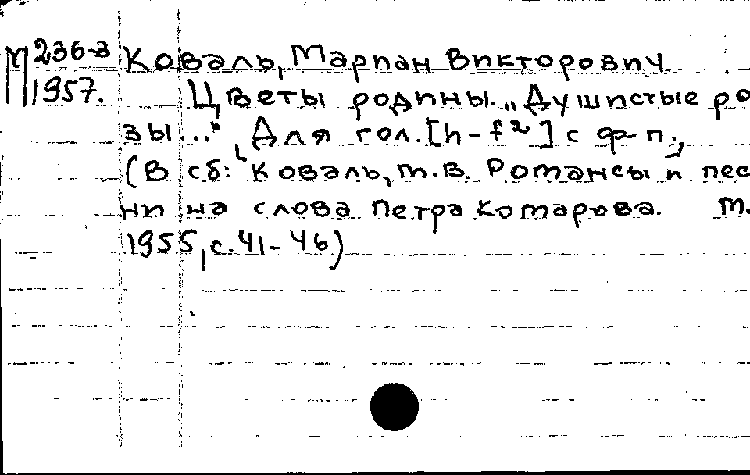 М 236-3 Коваль, Мариан Викторович
1957. Цветы родины. „Душистые ро
зы..." Для гол. [h-f²] с ф-п.,
(В сб: Коваль, М.В. Романсы и пес
ни на слова Петра Комарова. М.
1955, с. 41-46)